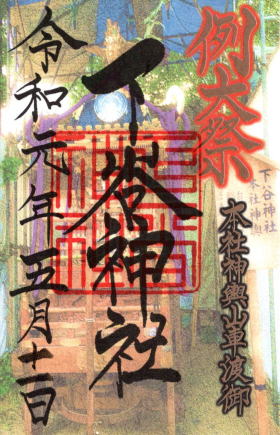 例大祭
本社神輿山車渡御
下谷神社
令和元年五月十二日
下谷神社
本社神輿